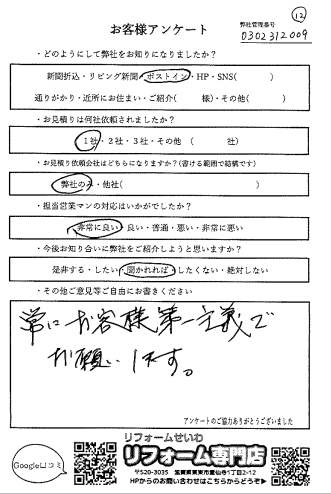 ⑫
お客様アンケート
弊社管理番号
0302312009
・どのようにして弊社をお知りになりましたか？
新聞折込・リビング新聞・ポストイン・HP・SNS(　　　)
通りがかり・近所にお住まい・ご紹介(　　　様)・その他(　　　)
・お見積りは何社依頼されましたか？
1社・2社・3社・その他　(　　　社)
・お見積り依頼会社はどちらになりますか？(書ける範囲で結構です)
弊社のみ・他社(　　　)
・担当営業マンの対応はいかがでしたか？
非常に良い・良い・普通・悪い・非常に悪い
・今後お知り合いに弊社をご紹介しようと思いますか？
是非する・したい・聞かれれば・したくない・絶対しない
・その他ご意見等ご自由にお書きください
常にお客様第一主義で
お願いします。
アンケートのご協力ありがとうございました
Google口コミ
リフォームせいわ
リフォーム専門店
〒520-3035　滋賀県栗東市霊仙寺1丁目2-12
HPからのお問い合わせはこちらからどうぞ▶